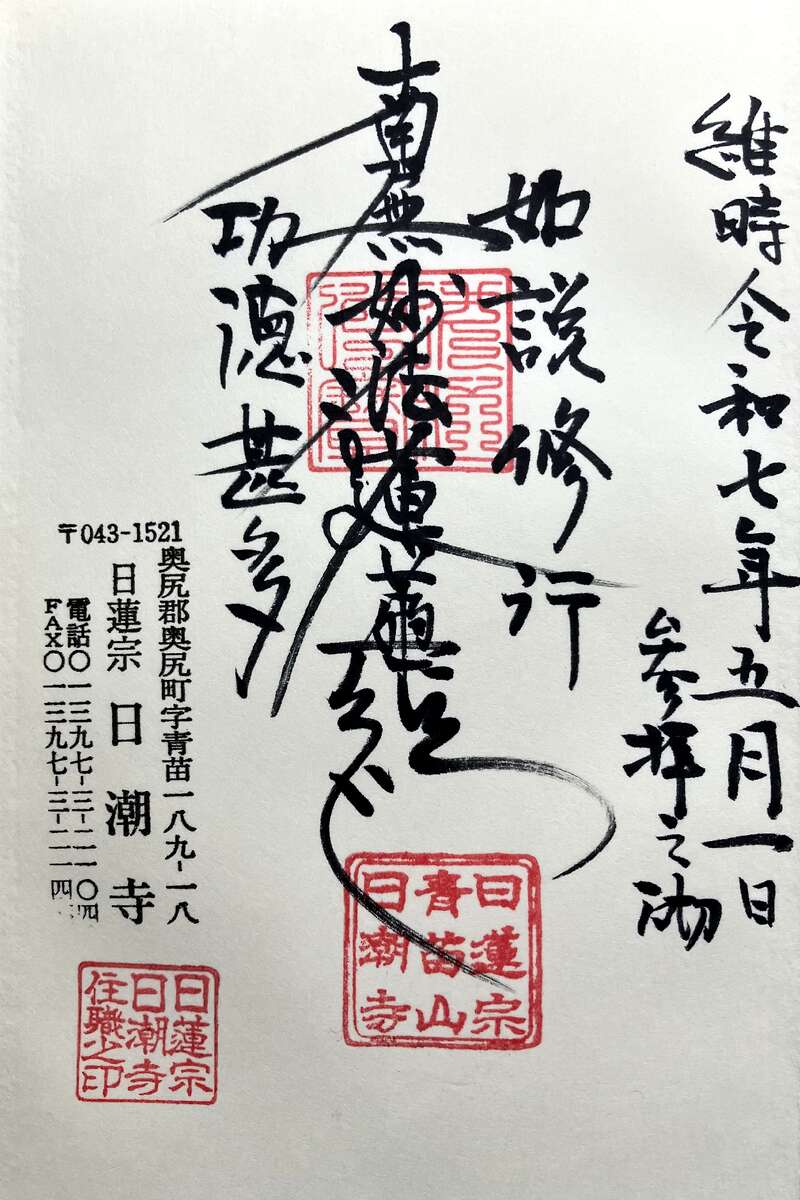 維時令和七年五月一日
参拝之砌
如説修行
南無妙法蓮華経
功徳甚多
〒043-1521
奥尻郡奥尻町字青苗一八九-一八
日蓮宗 日潮寺
電話〇一三九七-三-二一〇四
FAX〇一三九七-三-二一四
日蓮宗
青苗山
日潮寺
日蓮宗
日潮寺
住職之印